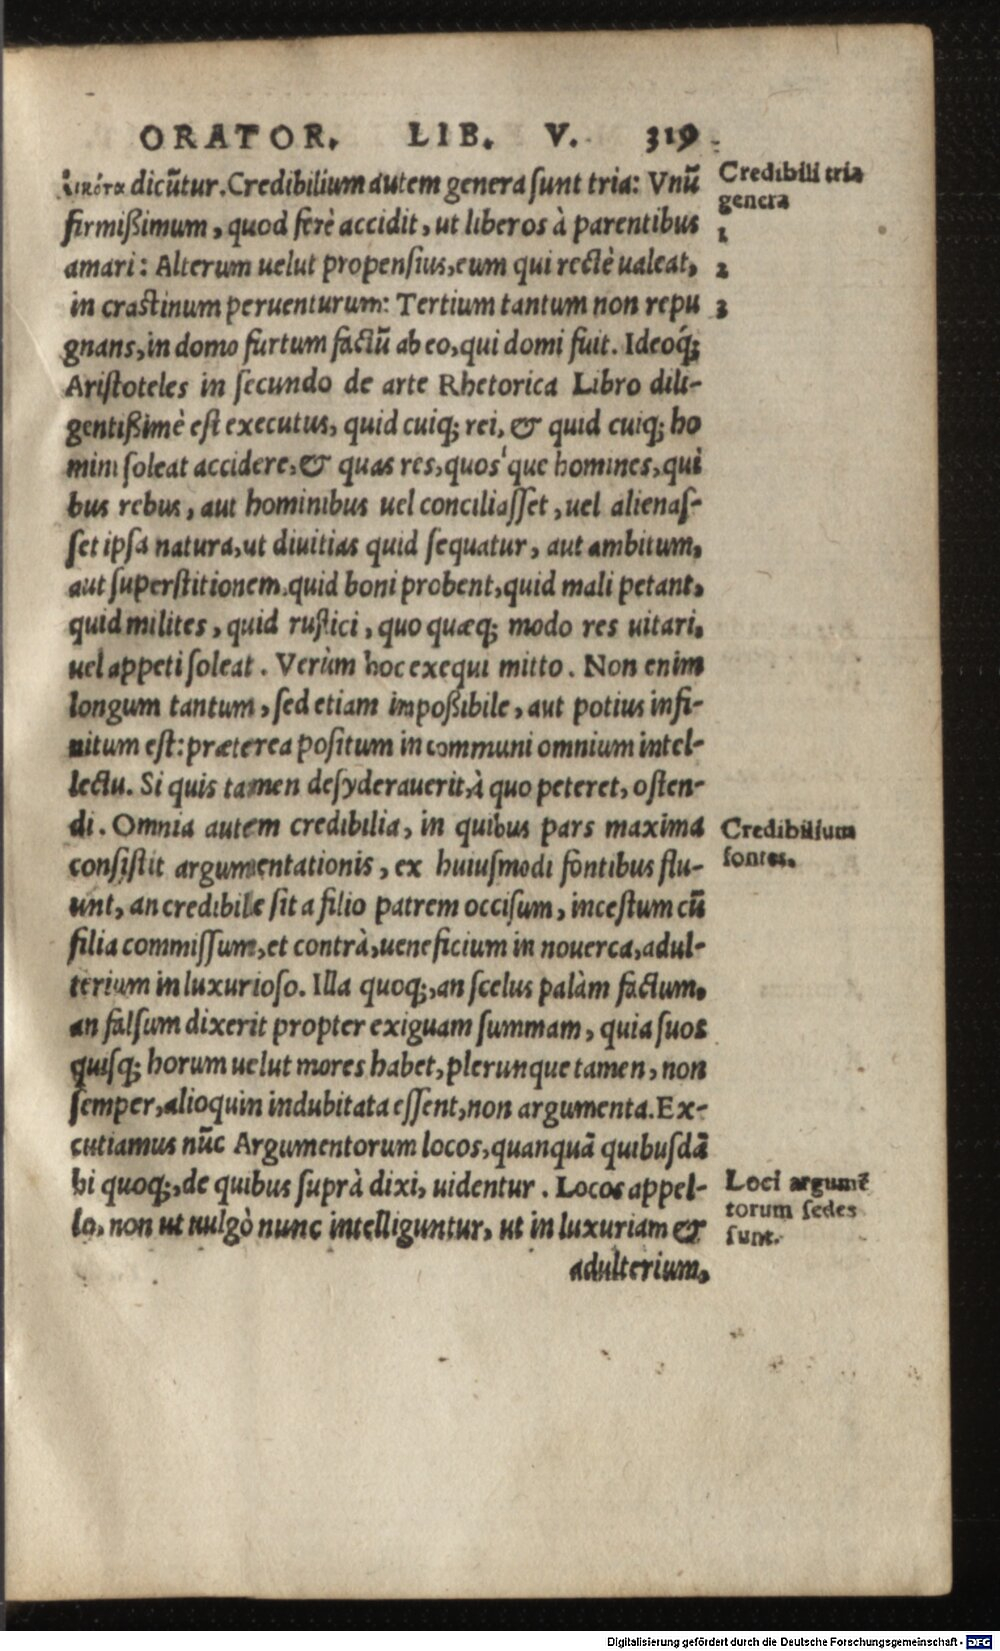 ORATOR. LIB. V. 319
εἰκότα dicūtur. Credibilium autem genera sunt tria: Vnū
firmißimum, quod ferè accidit, ut liberos à parentibus
amari: Alterum uelut propensius, eum qui rectè ualeat,
in crastinum peruenturum: Tertium tantum non repu
gnans, in domo furtum factū ab eo, qui domi fuit. Ideoq́;
Aristoteles in secundo de arte Rhetorica Libro dili-
gentißimè est executus, quid cuiq; rei, & quid cuiq; ho
mini soleat accidere, & quas res, quos'que homines, qui
bus rebus, aut hominibus uel conciliasset, uel alienas-
set ipsa natura, ut diuitias quid sequatur, aut ambitum,
aut superstitionem, quid boni probent, quid mali petant,
quid milites, quid rustici, quo quæq; modo res uitari,
uel appeti soleat. Verùm hoc exequi mitto. Non enim
longum tantum, sed etiam impoßibile, aut potius infi-
nitum est: præterea positum in communi omnium intel-
lectu. Si quis tamen desyderauerit, à quo peteret, osten-
di. Omnia autem credibilia, in quibus pars maxima
consistit argumentationis, ex huiusmodi fontibus flu-
unt, an credibile sit a filio patrem occisum, incestum cū
filia commissum, et contrà, ueneficium in nouerca, adul-
terium in luxurioso. Illa quoq;, an scelus palàm factum,
an falsum dixerit propter exiguam summam, quia suos
quisq; horum uelut mores habet, plerunque tamen, non
semper, alioquin indubitata essent, non argumenta. Ex-
cutiamus nūc Argumentorum locos, quanquā quibusdā
hi quoq;, de quibus suprà dixi, uidentur. Locos appel-
lo, non ut uulgò nunc intelliguntur, ut in luxuriam &
adulterium,
Credibiliū tria
genera
1
2
3
Credibilium
fontes.
Loci argumē
torum sedes
sunt.
Digitalisierung gefördert durch die Deutsche Forschungsgemeinschaft - DFG